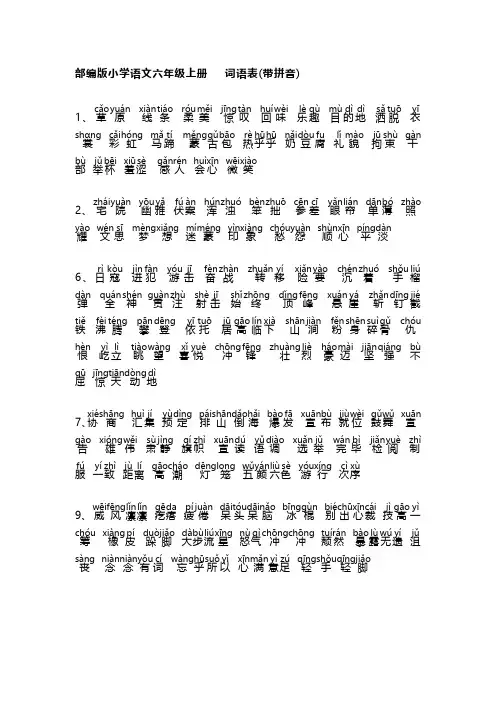 部编版小学语文六年级上册 词语表(带拼音)
cǎoyuán xiàntiáo róu měi jīng tàn huí wèi lè qù mù dì dì sǎ tuō yī
1、草 原 线 条 柔 美 惊 叹 回 味 乐 趣 目 的 地 洒 脱 衣
shɑng cǎihóng mǎ tí měnggǔbāo rè hū hū nǎidòu fu lǐ mào jū shù gàn
裳 彩 虹 马 蹄 蒙 古 包 热乎乎 奶 豆 腐 礼 貌 拘 束 干
bù jǔ bēi xiū sè gǎnrén huìxīn wēixiào
部 举杯 羞涩 感 人 会心 微 笑
zháiyuàn yōu yǎ fú àn húnzhuó bènzhuō cēn cī yǎnlián dānbó zhào
2、宅 院 幽雅 伏案 浑 浊 笨 拙 参 差 眼 帘 单 薄 照
yào wén sī mèngxiǎng míméng yìnxiàng chóuyuàn shùnxīn píngdàn
耀 文 思 梦 想 迷 蒙 印 象 愁 怨 顺 心 平 淡
rì kòu jìn fàn yóu jī fèn zhàn zhuǎn yí xiǎnyào chénzhuó shǒu liú
6、日 寇 进 犯 游 击 奋 战 转 移 险 要 沉 着 手 榴
dàn quánshén guàn zhù shè jī shǐ zhōng dǐng fēng xuán yá zhǎndīng jié
弹 全 神 贯 注 射 击 始 终 顶 峰 悬 崖 斩 钉 截
tiě fèi téng pān dēng yī tuō jū gāo lín xià shān jiàn fěn shēn suì gǔ chóu
铁 沸 腾 攀 登 依 托 居 高 临 下 山 涧 粉 身 碎 骨 仇
hèn yì lì tiàowàng xǐ yuè chōng fēng zhuàng liè háomài jiānqiáng bù
恨 屹立 眺 望 喜 悦 冲 锋 壮 烈 豪 迈 坚 强 不
qū jīngtiāndòng dì
屈 惊 天 动 地
xiéshāng huì jí yùdìng páishāndǎohǎi bào fā xuānbù jiùwèi gǔwǔ xuān
7、协 商 汇集 预 定 排 山 倒 海 爆 发 宣 布 就位 鼓舞 宣
gào xióngwěi sùjìng qí zhì xuāndú yǔ diào xuǎn jǔ wán bì jiǎnyuè zhì
告 雄 伟 肃静 旗帜 宣 读 语 调 选 举 完 毕 检 阅 制
fú yí zhì jù lí gāocháo dēnglong wǔyánliù sè yóuxíng cì xù
服 一致 距离 高 潮 灯 笼 五颜六色 游 行 次序
wēifēnglǐn lǐn gēda pí juàn dāitóudāinǎo bīnggùn biéchūxīncái jì gāo yì
9、威 风凛凛 疙瘩 疲 倦 呆头呆 脑 冰 棍 别 出心裁 技 高 一
chóu xiàng pí duòjiǎo dàbùliúxīng nù qì chōngchōng tuírán bào lù wú yí jǔ
筹 橡 皮 跺脚 大步流 星 怒气 冲 冲 颓然 暴 露无遗 沮
sàng niànniànyǒu cí wànghūsuǒ yǐ xīnmǎn yì zú qīngshǒuqīngjiǎo
丧 念 念 有 词 忘 乎所以 心 满 意足 轻 手 轻 脚